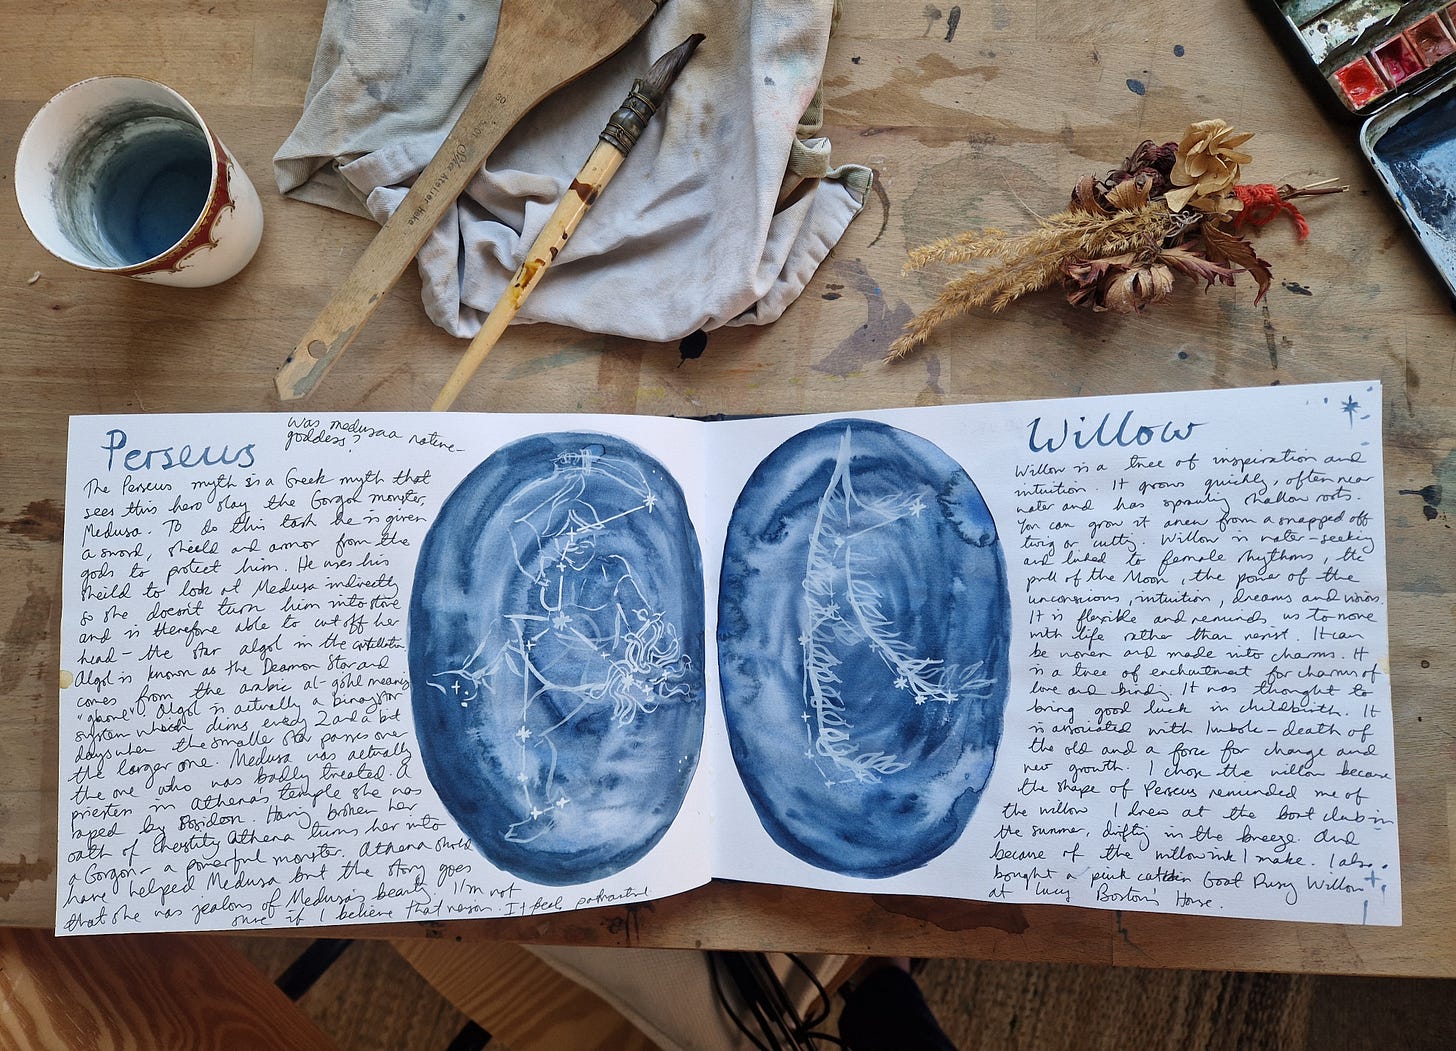 Perseus
was medusa a nature-
goddess?
The Perseus myth is a Greek myth that
sees this hero slay the Gorgon monster,
Medusa. To do this task he is given
a sword, shield and armor from the
gods to protect him. He uses his
sheild to look at Medusa indirectly
so she doesn't turn him into stone
and is therefore able to cut off her
head – the star algol in the constellation
Algol is known as the Deamon Star and
comes from the arabic al-gohl meaning
"ghome". Algol is actually a binary star
system which dims every 2 and a bit
days when the smaller star passes over
the larger one. Medusa was actually
the one who was badly treated. A
priestess in Athena's temple she was
raped by Posidon. Having broken her
oath of Chastity Athena turns her into
a Gorgon – a powerful monster. Athena should
have helped Medusa but the story goes
that she was jealous of Medusa's beauty. I'm not
sure if I believe that reason. It feels patriarchal
Willow
Willow is a tree of inspiration and
intuition. It grows quickly, often near
water and has sprawling shallow roots.
You can grow it anew from a snapped off
twig or cutting. Willow is water-seeking
and linked to female rhythms, the
pull of the Moon, the power of the
unconscious, intuition, dreams and visions.
It is flexible and reminds us to move
with life rather than resist. It can
be woven and made into charms. It
is a tree of enchantment for charms of
love and binding. It was thought to
bring good luck in childbirth. It
is associated with Imbolc – death of
the old and a force for change and
new growth. I chose the willow because
the shape of Perseus reminded me of
the willow I drew at the boat club in
the summer, drifting in the breeze. And
because of the willow ink I make. I also
bought a pink catkin Goat Pussy Willow
at Lucy Boston's House.
30
Atelier Hake